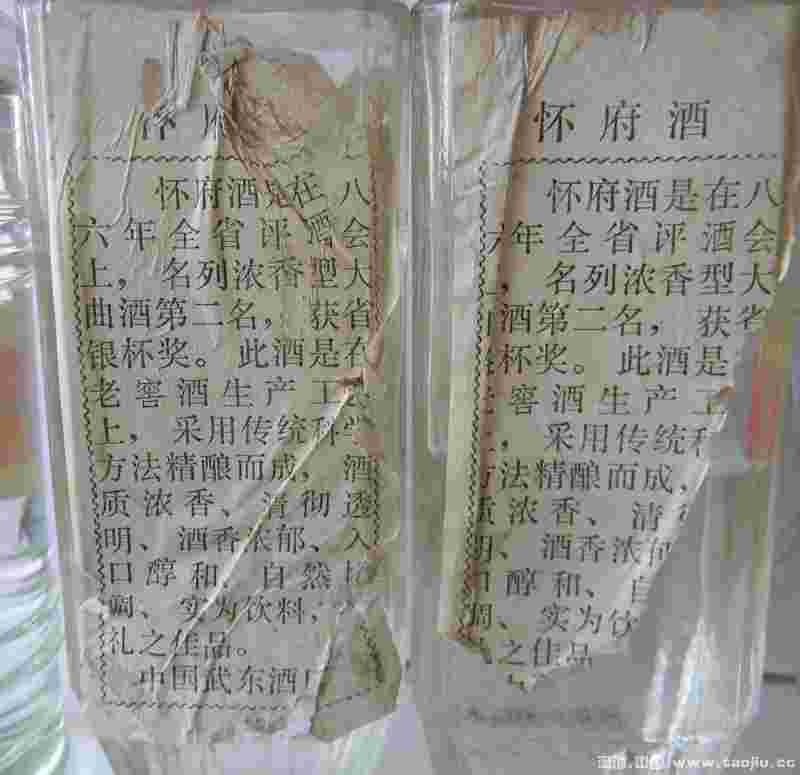 怀府酒是在八
六年全省评酒会
上，名列浓香型大
曲酒第二名，获省
银杯奖。此酒是在
老窖酒生产工
上，采用传统科学
方法精酿而成，酒
质浓香、清彻透
明、酒香浓郁、入
口醇和、自然
调、实为饮料，
礼之佳品。
中国武东酒厂
怀府酒
怀府酒是在八
六年全省评酒会
上，名列浓香型大
酒第二名，获省
杯奖。此酒是
窖酒生产
采用传统科
方法精酿而成，
质浓香、清
明、酒香浓郁
口醇和、自
调、实为饮
之佳品
www.taojiu.cc